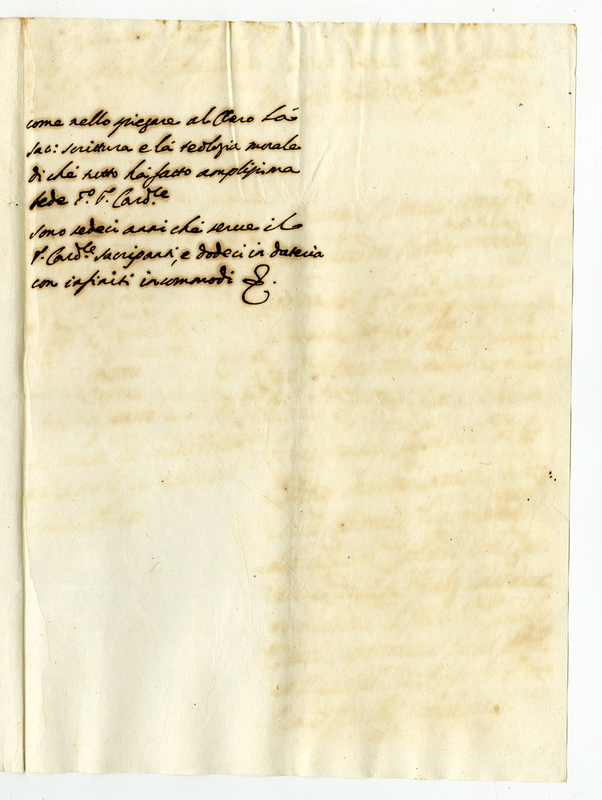 come nello piegare al Clero là
sac: scrittura e là teologia morale
di chè tutto hà fatto amplissima
fede
sono sedeci anni chè serue il
Card.le sacripanti, e dodeci in dateria
con infiniti incommodi